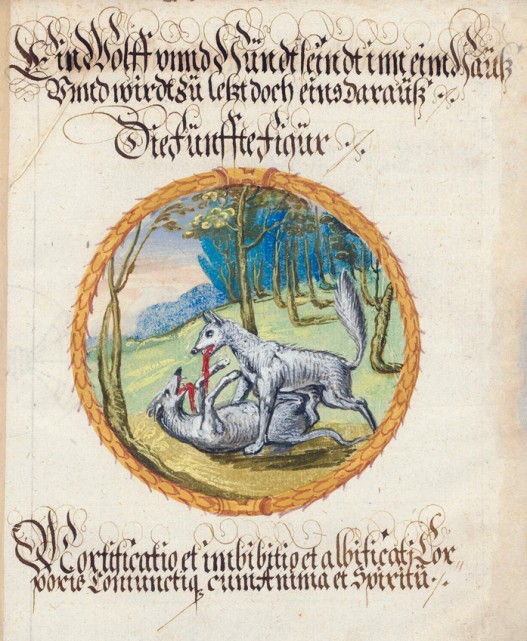 Ein Wolff vnnd Hündt seindt inn eim Hauß
Vnnd wirdt zü letzt doch eins darauß ./.
Die fünffte Figür ./.
Mortificatio et imbibitio et albificatj Cor-
poris Coniunctiq, cum Anima et Spiritü ./.